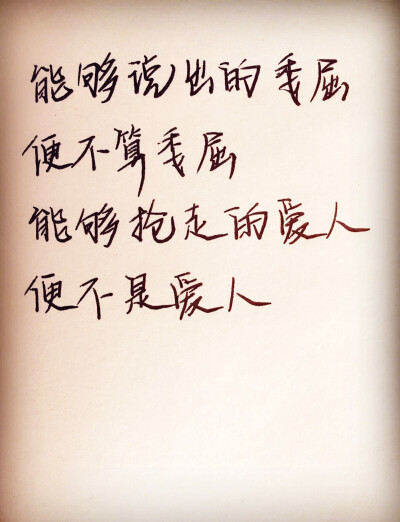 能够说出的委屈
便不算委屈
能够抢走的爱人
便不是爱人